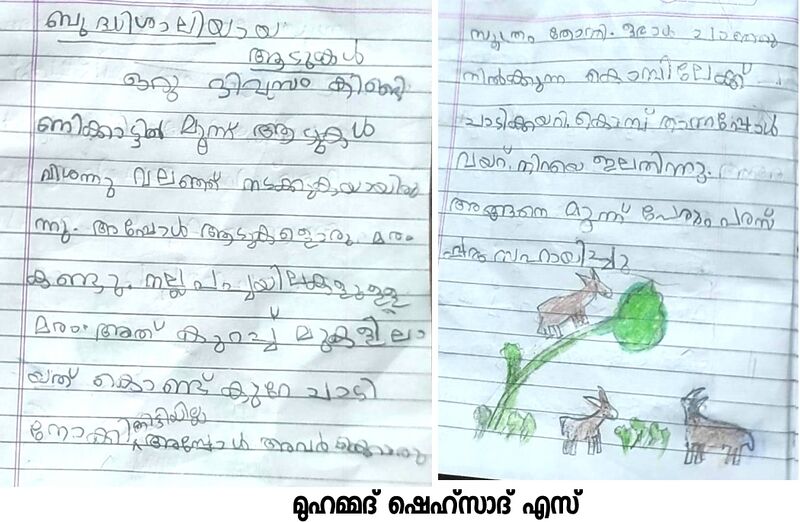 ബുദ്ധിശാലിയായ
ആടുകൾ
ഒരു ദിവസം കിണ്ടി
ണിക്കാട്ടിൽ മൂന്ന് ആടുകൾ
വിശന്നു വലഞ്ഞ് നടക്കുകയായിരു
ന്നു. അപ്പോൾ ആടുകളൊരു മരം
കണ്ടു. നല്ല പച്ചയിലകളുള്ള
മരം. അത് കുറച്ച് മുകളിലാ
യത് കൊണ്ട് കുറേ ചാടി
നോക്കി കിട്ടിയില്ല അപ്പോൾ അവർ
സൂത്രം തോന്നി. ഒരാൾ
നിൽക്കുന്ന കൊമ്പിലേക്ക്
ചാടിക്കയറി. കൊമ്പ് താന്നപ്പോൾ
വയറ് നിറയെ ഇലതിന്നു.
അങ്ങനെ മൂന്ന് പേരും പരസ്
പരം സഹായിച്ചു
മുഹമ്മദ് ഷെഹ്സാദ് എസ്